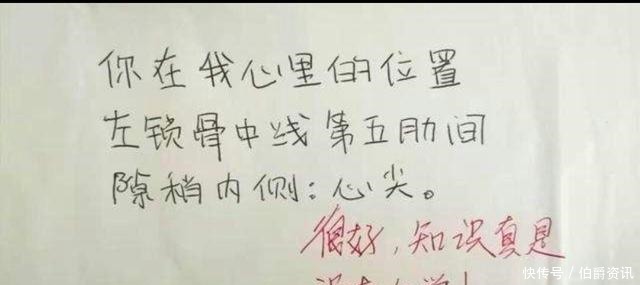 你在我心里的位置
左锁骨中线第五肋间
隙稍内侧：心尖。
很好，知识真是
快传号／伯爵资讯